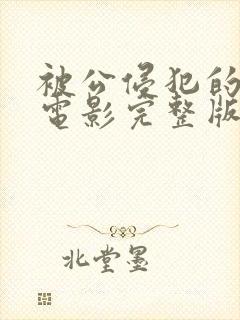 被公侵犯的
電影完整版
北堂墨